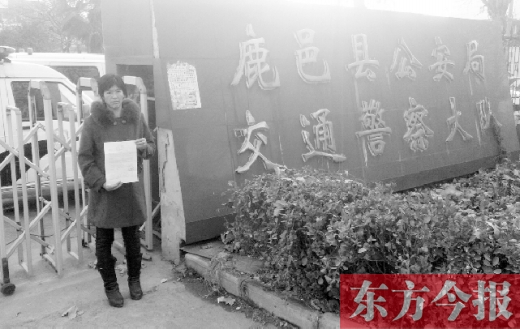 鹿邑县公安局
交通警察大队
东方今报